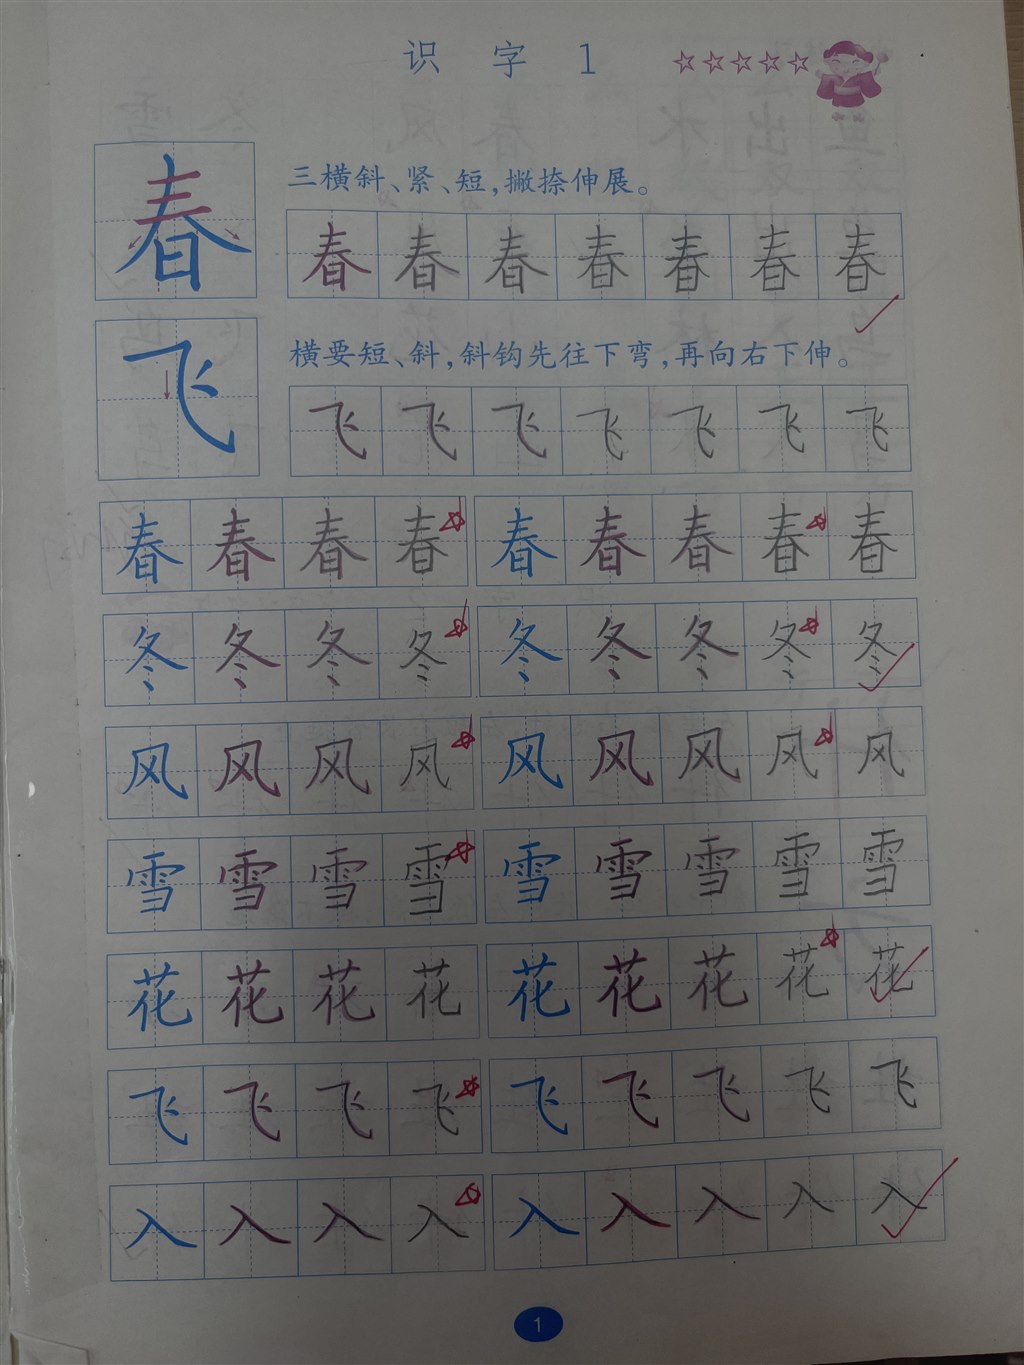 识 字 1
三横斜、紧、短,撇捺伸展。
春 春 春 春 春 春 春 春
横要短、斜,斜钩先往下弯,再向右下伸。
飞 飞 飞 飞 飞 飞 飞 飞
春 春 春 春 春 春 春 春 春
冬 冬 冬 冬 冬 冬 冬 冬 冬
风 风 风 风 风 风 风 风 风
雪 雪 雪 雪 雪 雪 雪 雪 雪
花 花 花 花 花 花 花 花 花
飞 飞 飞 飞 飞 飞 飞 飞 飞
入 入 入 入 入 入 入 入 入
1